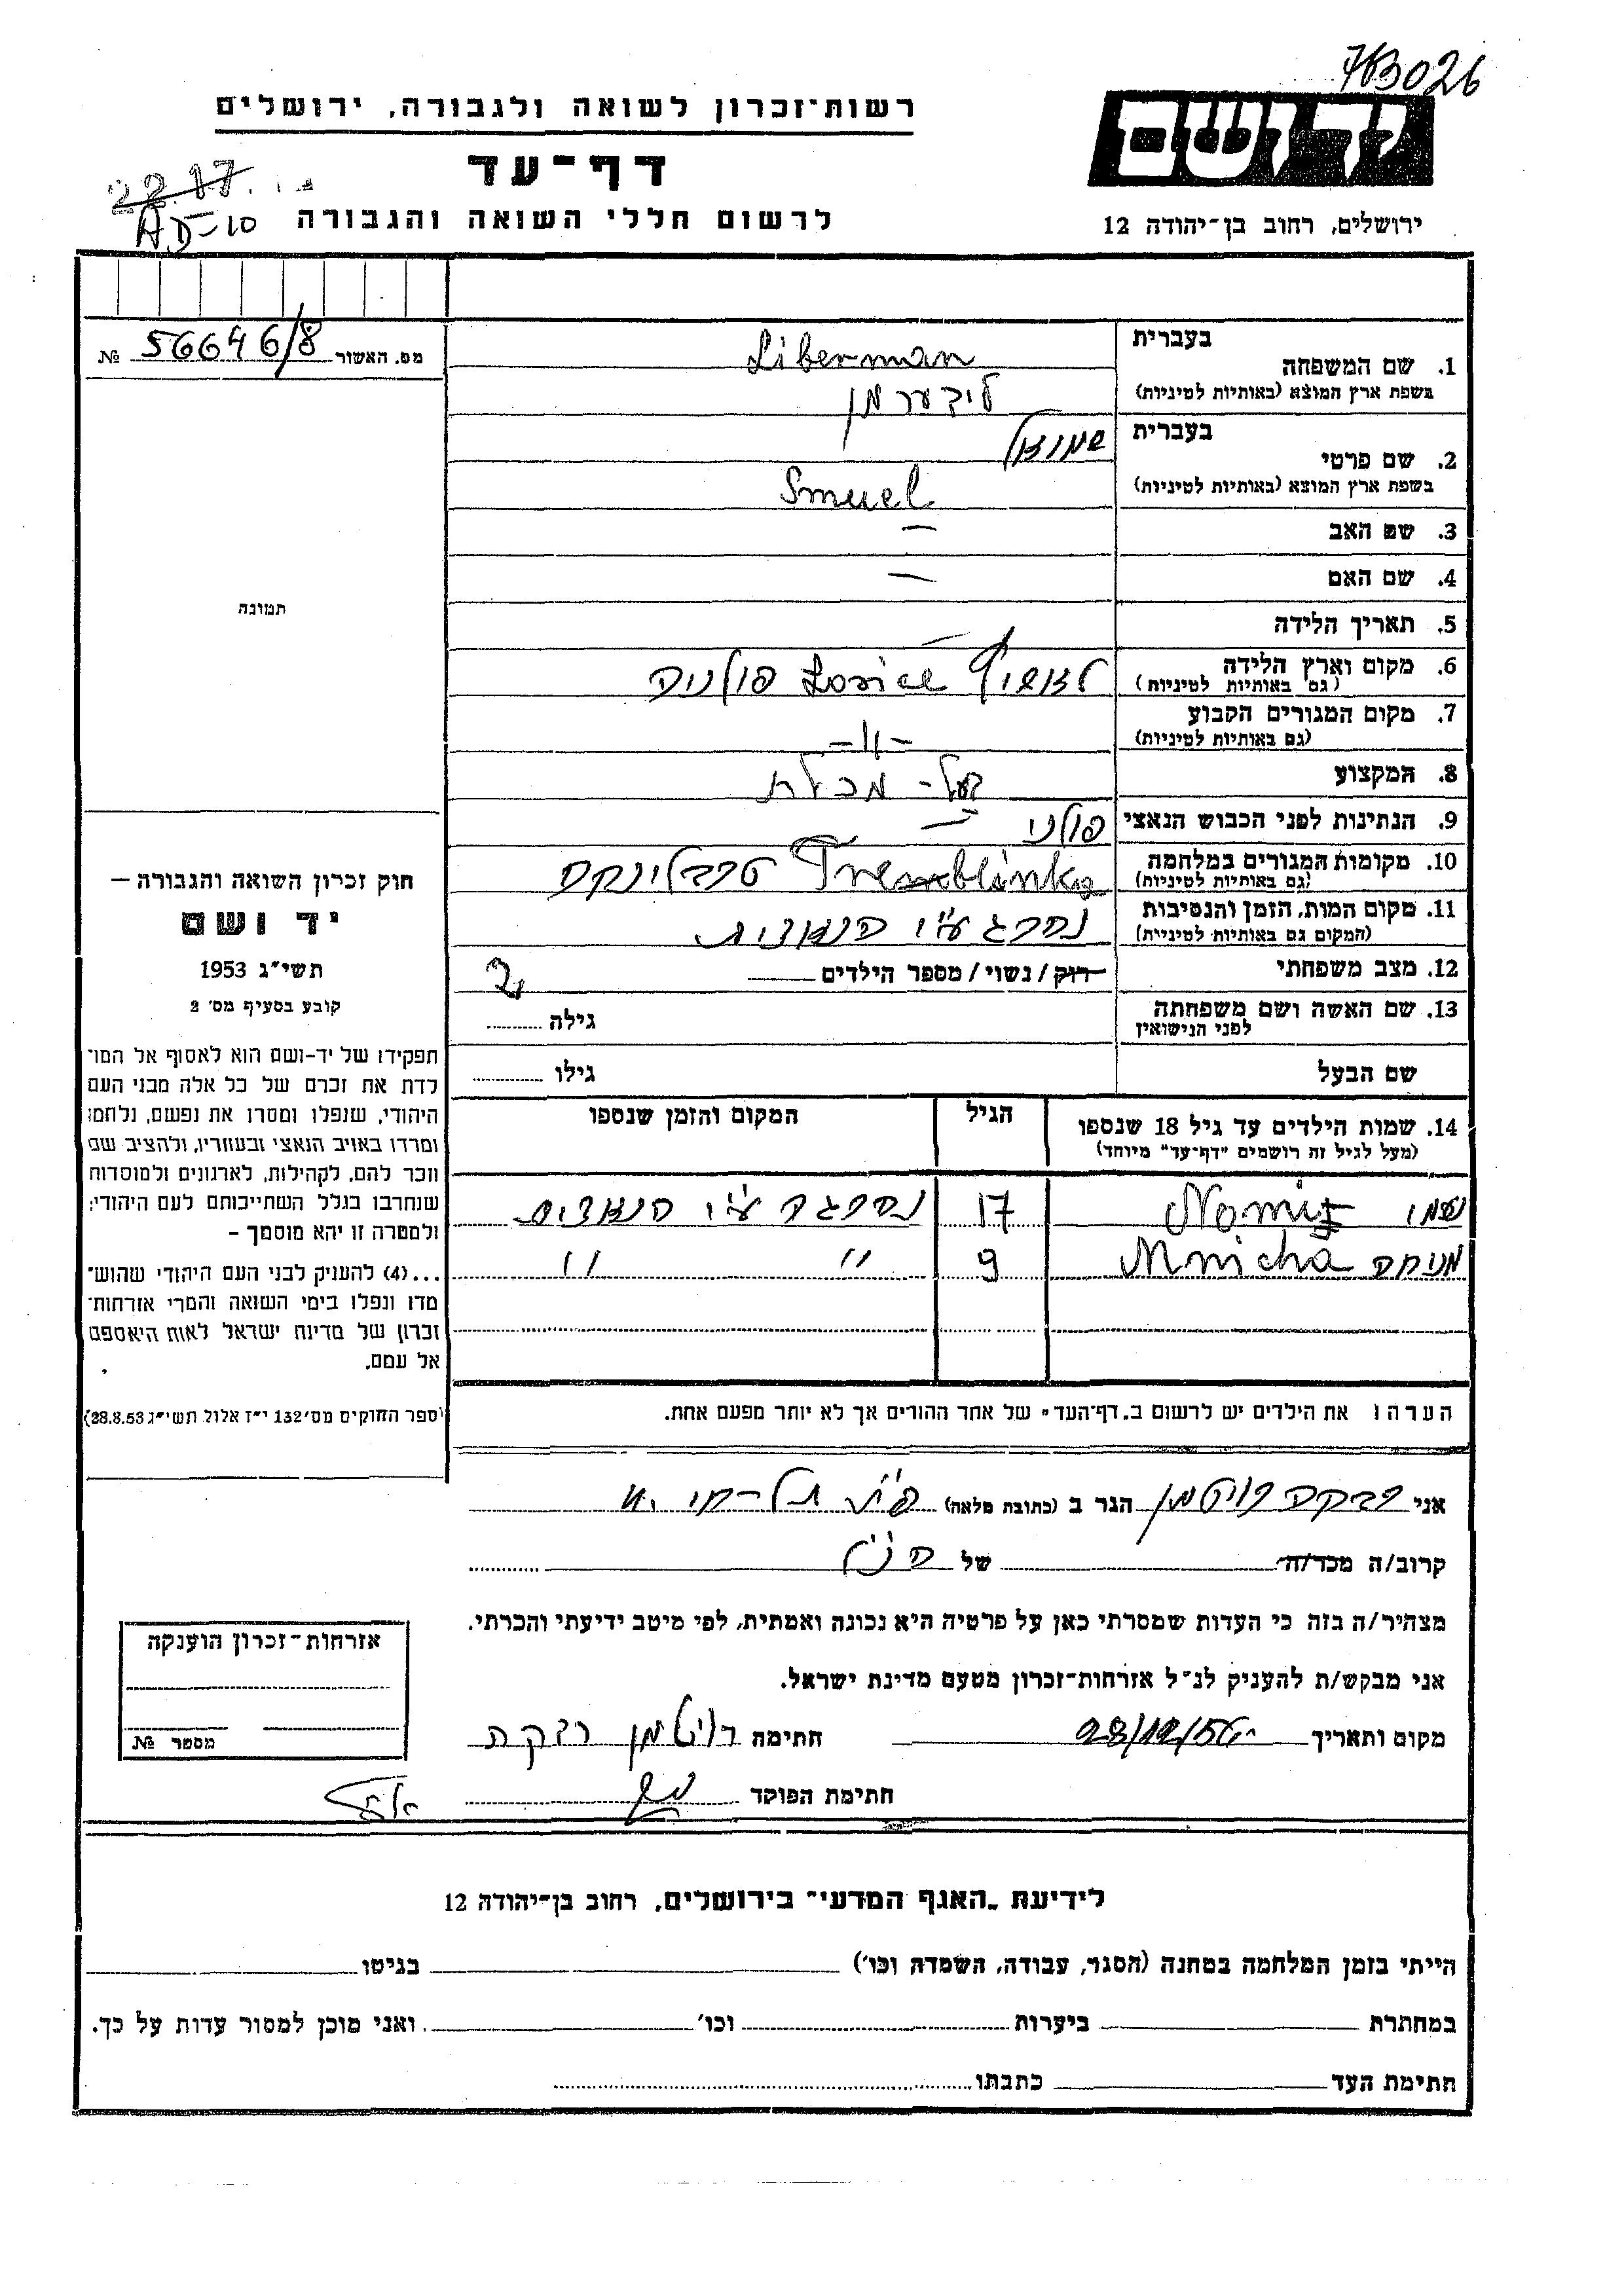 763026
יד ושם
ירושלים, רחוב בן־יהודה 12
רשות־זכרון לשואה ולגבורה, ירושלים
דף־עד
לרשום חללי השואה והגבורה
22.17
AD-10
מס. האשור 56646/8 №
תמונה
חוק זכרון השואה והגבורה —
יד ושם
תשי״ג 1953
קובע בסעיף מס׳ 2
תפקידו של יד-ושם הוא לאסוף אל המו־
לדת את זכרם של כל אלה מבני העם
היהודי, שנפלו ומסרו את נפשם, נלחמו
ומרדו באויב הנאצי ובעוזריו, ולהציב שם
וזכר להם, לקהילות, לארגונים ולמוסדות
שנחרבו בגלל השתייכותם לעם היהודי;
ולמטרה זו יהא מוסמך —
...(4) להעניק לבני העם היהודי שהוש־
מדו ונפלו בימי השואה והמרי אזרחות־
זכרון של מדינת ישראל לאות היאספם
אל עמם.
(ספר החוקים מס׳ 132 י״ז אלול תשי״ג 28.8.53)
בעברית
1. שם המשפחה Liberman
בשפת ארץ המוצא (באותיות לטיניות) ליבערמן
בעברית שמואל
2. שם פרטי
בשפת ארץ המוצא (באותיות לטיניות) Smuel
3. שם האב —
4. שם האם —
5. תאריך הלידה —
6. מקום וארץ הלידה
(גם באותיות לטיניות) Łosice פולניה
7. מקום המגורים הקבוע
(גם באותיות לטיניות) -11-
8. המקצוע בעל- מכלת
9. הנתינות לפני הכבוש הנאצי פולני
10. מקומות המגורים במלחמה
(גם באותיות לטיניות) Tremblinka טרבלינקה
11. מקום המות, הזמן והנסיבות
(המקום גם באותיות לטיניית) נהרג ע״י הנאצים
12. מצב משפחתי רוק/נשוי/מספר הילדים 2
13. שם האשה ושם משפחתה
לפני הנישואין גילה
שם הבעל גילו
14. שמות הילדים עד גיל 18 שנספו הגיל המקום והזמן שנספו
(מעל לגיל זה רושמים "דף־עד" מיוחד)
נעמי Nomi 17 נהרגה ע״י הנאצים
מניחה Mnicha 9 " "
הערה: את הילדים יש לרשום ב„דף־העד״ של אחד ההורים אך לא יותר מפעם אחת.
אני רבקה רויטמן הגר ב (כתובת מלאה)
קרוב/ה מכר/ה של הנ״ל
מצהיר/ה בזה כי העדות שמסרתי כאן על פרטיה היא נכונה ואמתית, לפי מיטב ידיעתי והכרתי.
אני מבקש/ת להעניק לנ״ל אזרחות־זכרון מטעם מדינת ישראל.
מקום ותאריך 28/12/56 חתימה רויטמן רבקה
חתימת הפוקד
אזרחות־זכרון הוענקה
מספר №
לידיעת „האגף המדעי״ בירושלים, רחוב בן־יהודה 12
הייתי בזמן המלחמה במחנה (הסגר, עבודה, השמדה וכו׳) בגיטו
במחתרת ביערות וכו׳ ואני מוכן למסור עדות על כך.
חתימת העד כתבתו